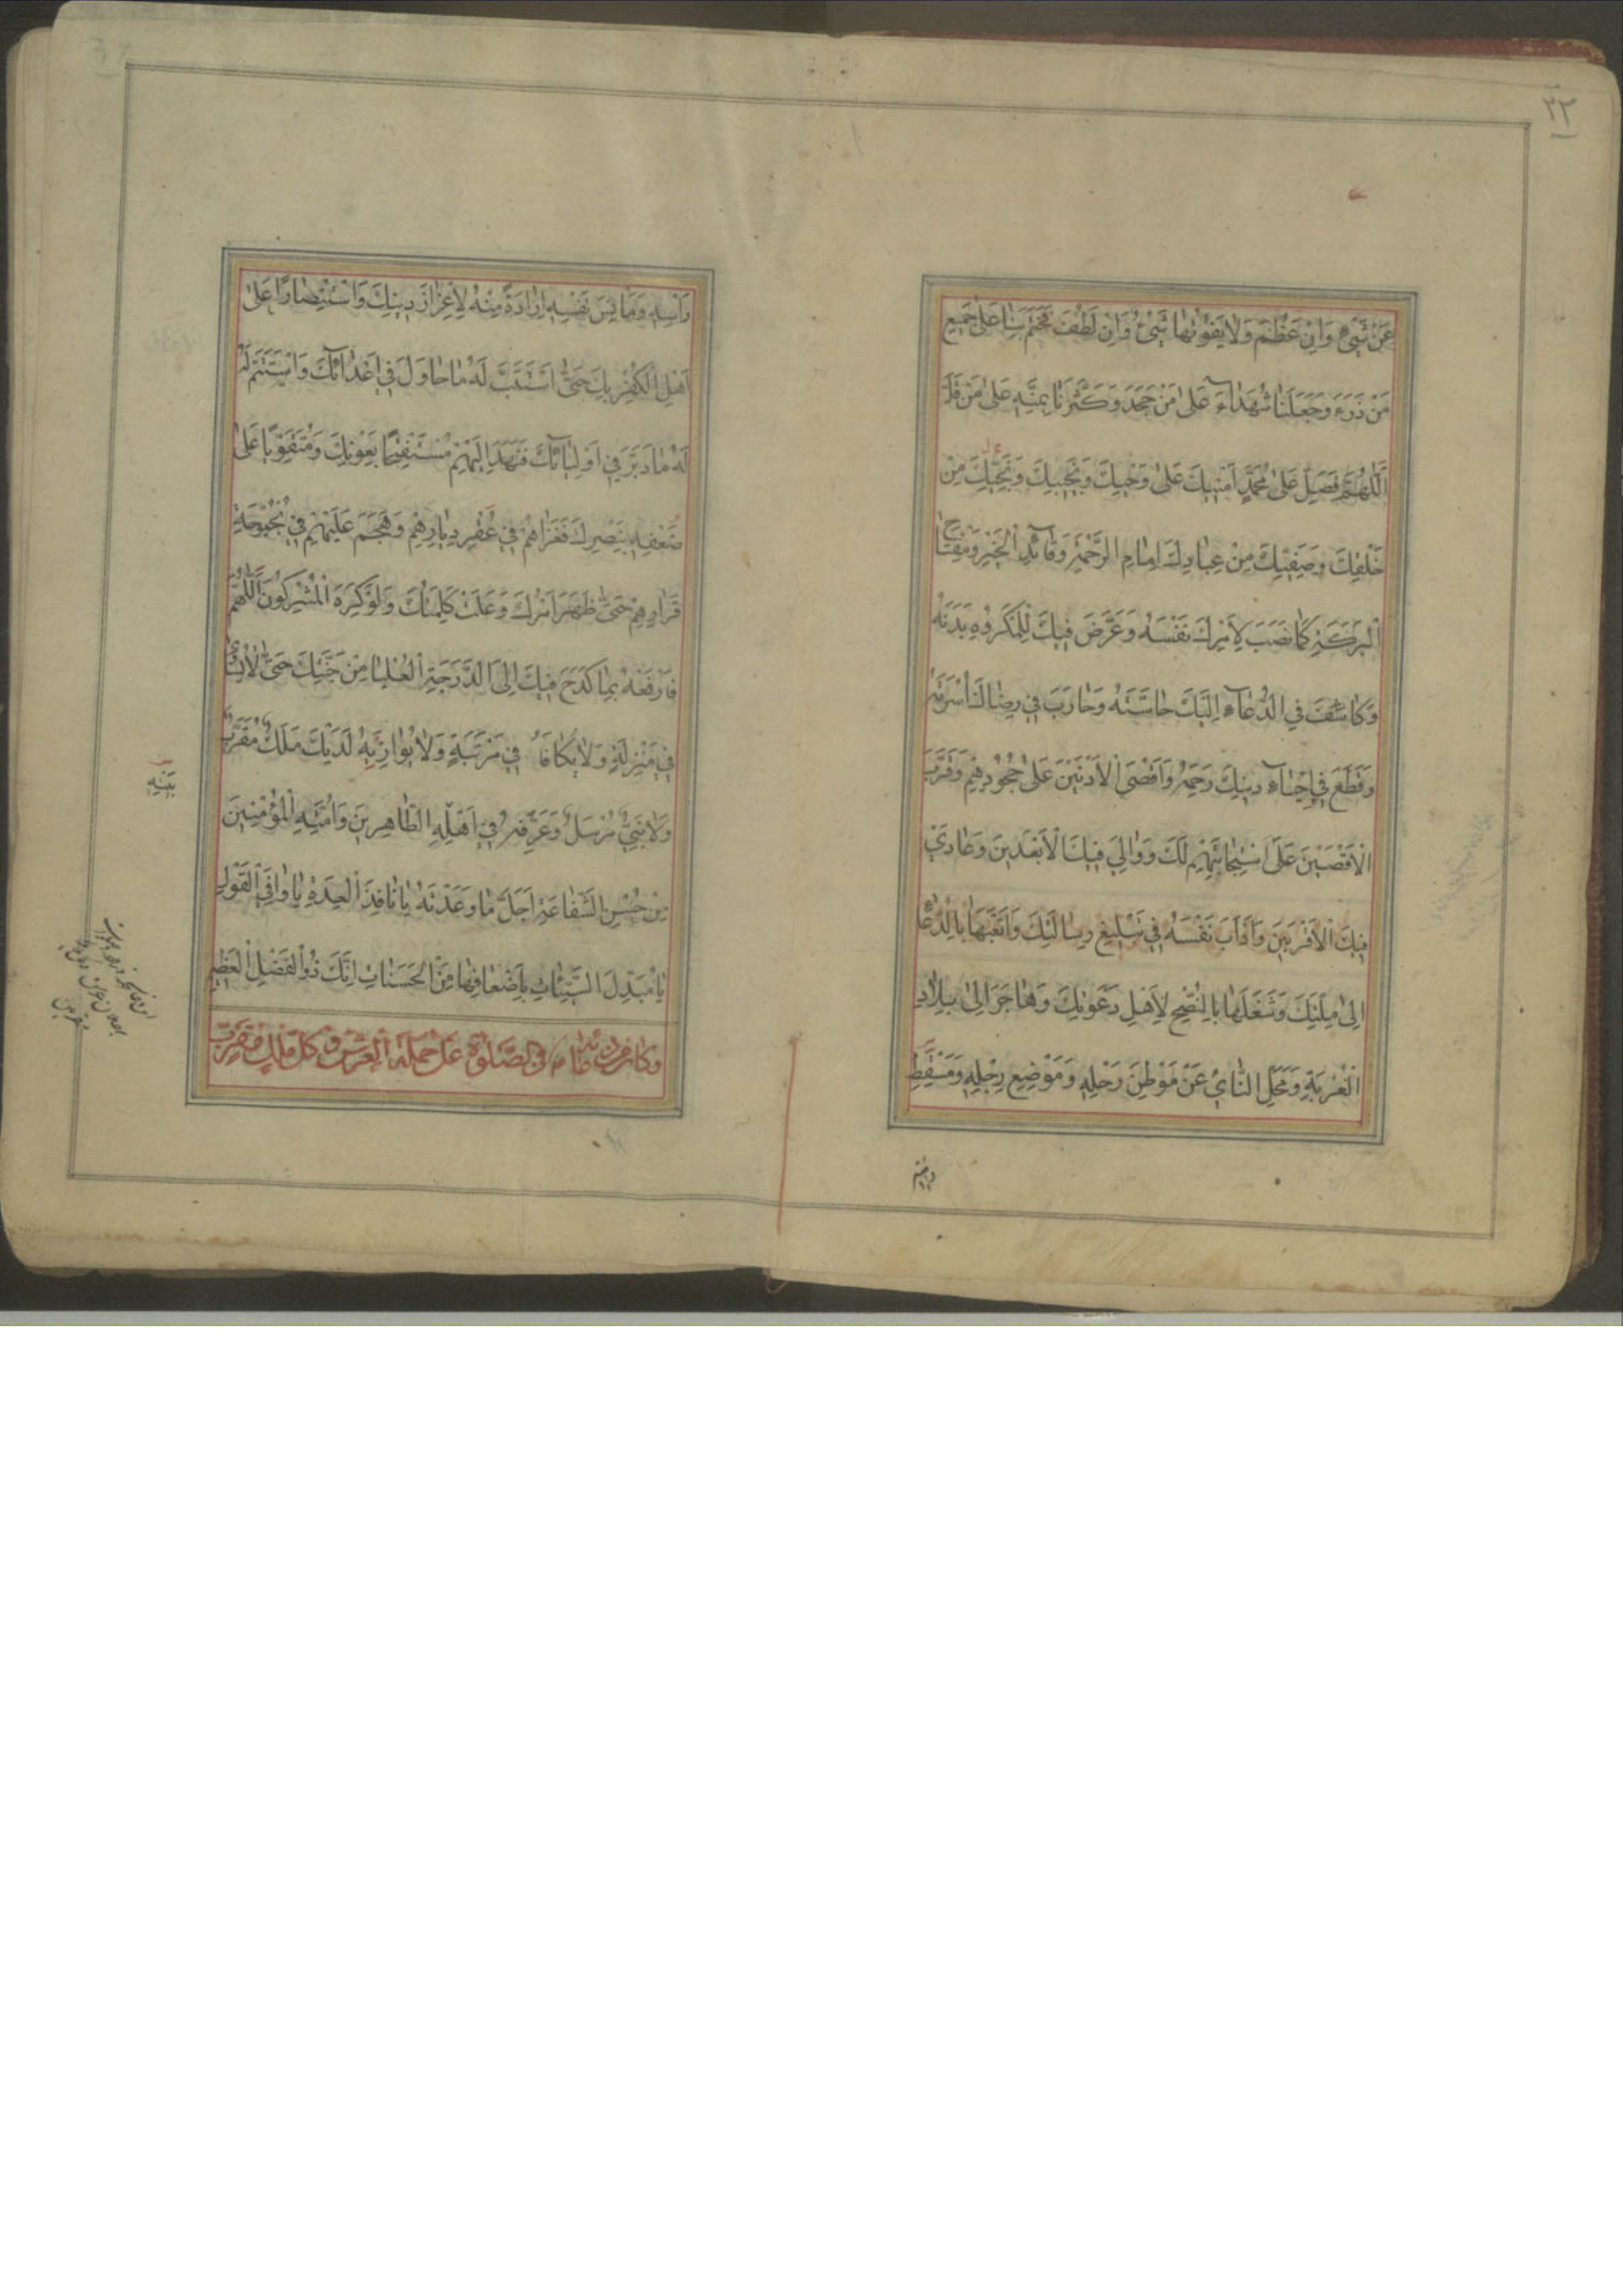 ٣٢
عَنْ شَيْءٍ وَاِنْ عَظُمَ وَلَا يَفُوتُهَا شَيْءٌ وَاِنْ لَطُفَ فَخَتَمَ بِنَا عَلٰى جَمِيعِ
مَنْ ذَرَءَ وَجَعَلَنَا شُهَدَآءَ عَلٰى مَنْ جَحَدَ وَكَثَّرَنَا بِمَنِّهِ عَلٰى مَنْ قَلَّ
اَللّٰهُمَّ فَصَلِّ عَلٰى مُحَمَّدٍ اَمِينِكَ عَلٰى وَحْيِكَ وَنَجِيبِكَ وَنَجِيِّكَ مِنْ
خَلْقِكَ وَصَفِيِّكَ مِنْ عِبَادِكَ اِمَامِ الرَّحْمَةِ وَقَآئِدِ الْخَيْرِ وَمِفْتَاحِ
الْبَرَكَةِ كَمَا نَصَبَ لِاَمْرِكَ نَفْسَهُ وَعَرَّضَ فِيكَ لِلْمَكْرُوهِ بَدَنَهُ
وَكَاشَفَ فِي الدُّعَآءِ اِلَيْكَ حَاسَّتَهُ وَحَارَبَ فِي رِضَاكَ اُسْرَتَهُ
وَقَطَعَ فِي اِحْيَآءِ دِينِكَ رَحِمَهُ وَاَقْصَى الْاَدْنَيْنَ عَلٰى جُحُودِهِمْ وَقَرَّبَ
الْاَقْصَيْنَ عَلَى اسْتِجَابَتِهِمْ لَكَ وَوَالٰى فِيكَ الْاَبْعَدِينَ وَعَادٰى
فِيكَ الْاَقْرَبِينَ وَاَدْاَبَ نَفْسَهُ فِي تَبْلِيغِ رِسَالَتِكَ وَاَتْعَبَهَا بِالدُّعَاءِ
اِلٰى مِلَّتِكَ وَشَغَلَهَا بِالنُّصْحِ لِاَهْلِ دَعْوَتِكَ وَهَاجَرَ اِلٰى بِلَادِ
الْغُرْبَةِ وَمَحَلِّ النَّأْيِ عَنْ مَوْطِنِ رَحْلِهِ وَمَوْضِعِ رِجْلِهِ وَمَسْقَطِ
رَأْسِهِ وَمَأْنَسِ نَفْسِهِ اِرَادَةً مِنْهُ لِاِعْزَازِ دِينِكَ وَاسْتِنْصَارًا عَلٰى
اَهْلِ الْكُفْرِ بِكَ حَتَّى اسْتَتَبَّ لَهُ مَا حَاوَلَ فِي اَعْدَآئِكَ وَاسْتَتَمَّ لَهُ
لَهُ مَا دَبَّرَ فِي اَوْلِيَآئِكَ فَنَهَدَ اِلَيْهِمْ مُسْتَفْتِحًا بِعَوْنِكَ وَمُتَقَوِّيًا عَلٰى
ضَعْفِهِ بِنَصْرِكَ فَغَزَاهُمْ فِي عُقْرِ دِيَارِهِمْ وَهَجَمَ عَلَيْهِمْ فِي بُحْبُوحَةِ
قَرَارِهِمْ حَتّٰى ظَهَرَ اَمْرُكَ وَعَلَتْ كَلِمَتُكَ وَلَوْ كَرِهَ الْمُشْرِكُونَ اَللّٰهُمَّ
فَارْفَعْهُ بِمَا كَدَحَ فِيكَ اِلَى الدَّرَجَةِ الْعُلْيَا مِنْ جَنَّتِكَ حَتّٰى لَا يُسَاوٰى
فِي مَنْزِلَةٍ وَلَا يُكَافَأَ فِي مَرْتَبَةٍ وَلَا يُوَازِيَهُ لَدَيْكَ مَلَكٌ مُقَرَّبٌ
وَلَا نَبِيٌّ مُرْسَلٌ وَعَرِّفْهُ فِي اَهْلِهِ الطَّاهِرِينَ وَاُمَّتِهِ الْمُؤْمِنِينَ
مِنْ حُسْنِ الشَّفَاعَةِ اَجَلَّ مَا وَعَدْتَهُ يَا نَافِذَ الْعِدَةِ يَا وَافِيَ الْقَوْلِ
يَا مُبَدِّلَ السَّيِّئَاتِ بِاَضْعَافِهَا مِنَ الْحَسَنَاتِ اِنَّكَ ذُو الْفَضْلِ الْعَظِيمِ
وَكَانَ مِنْ دُعَائِهِ فِي الصَّلٰوةِ عَلٰى حَمَلَةِ الْعَرْشِ وَكُلِّ مَلَكٍ مُقَرَّبٍ